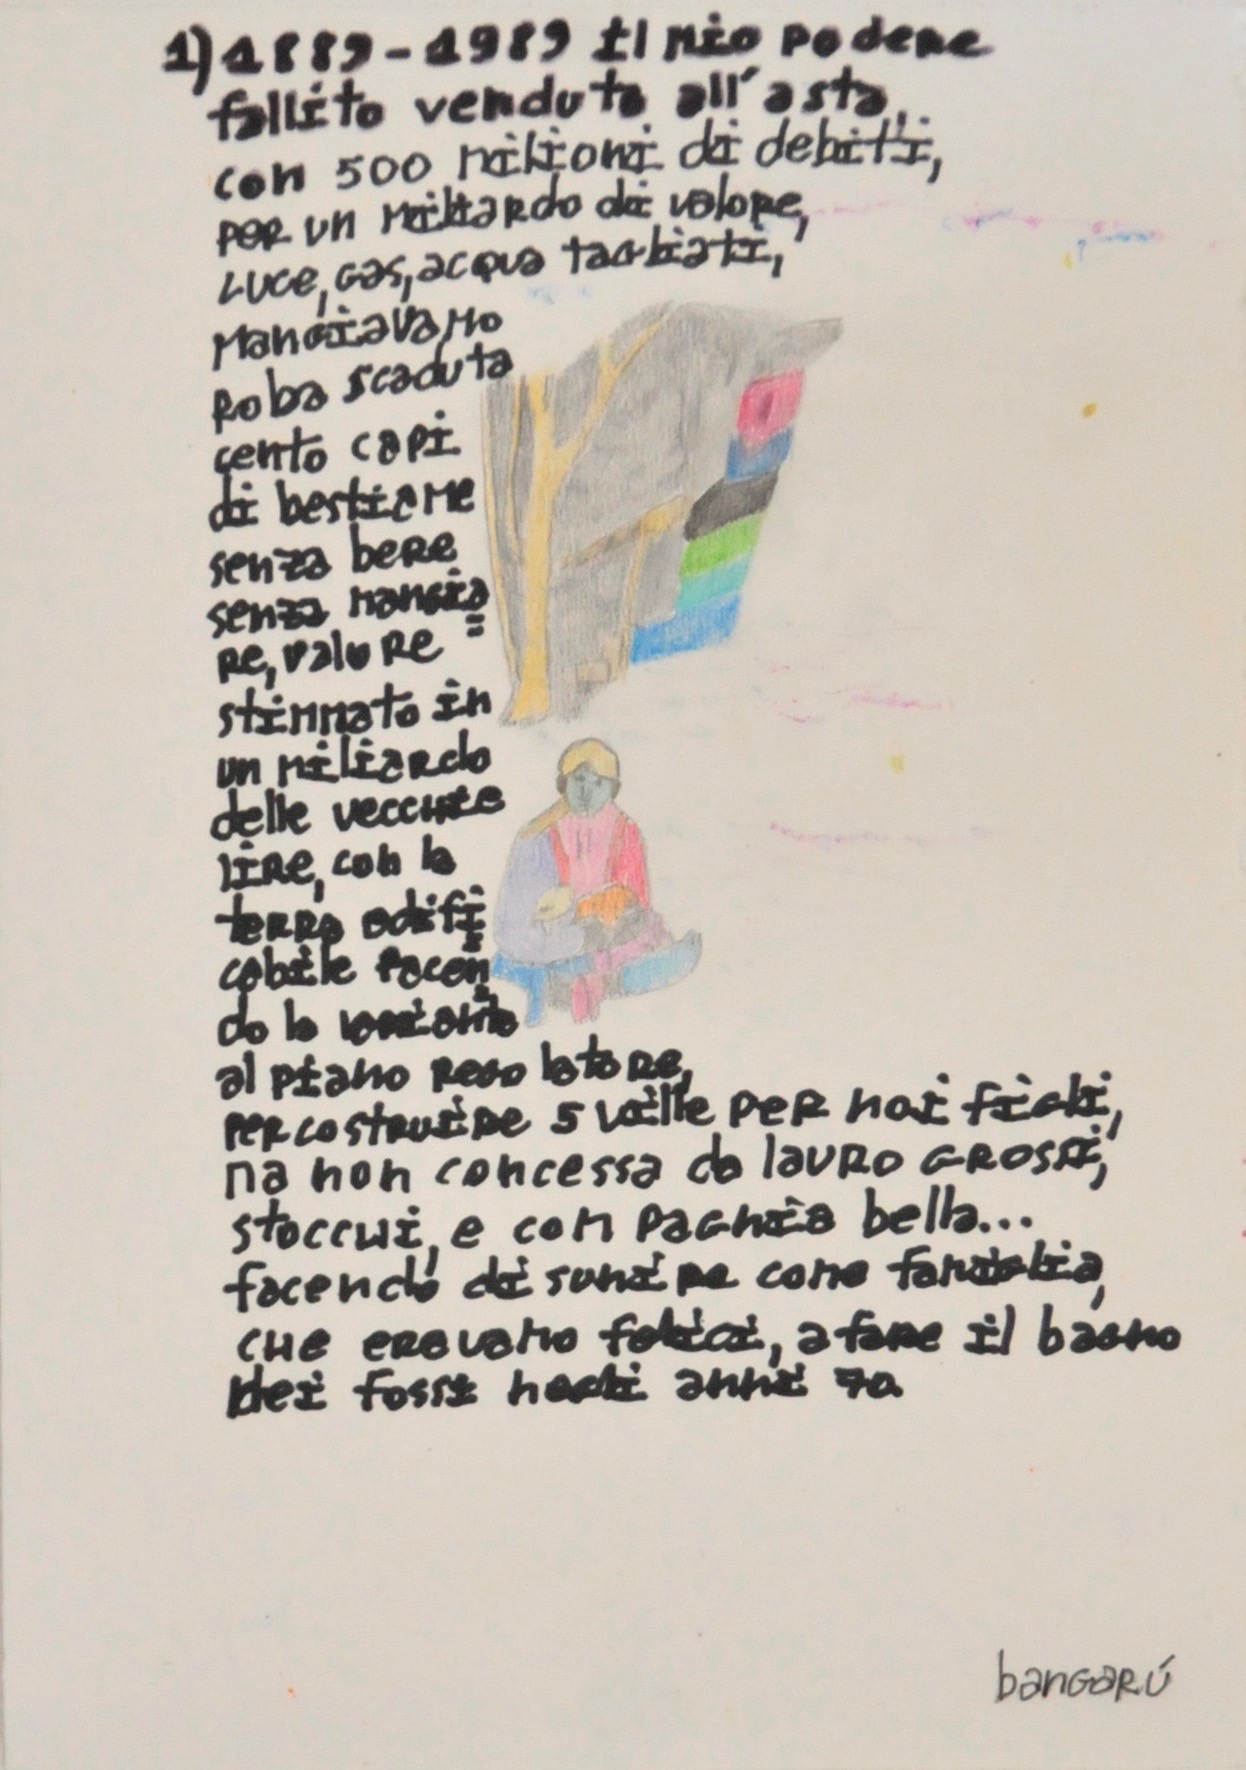 1) 1889-1989 il mio podere
fallito venduto all'asta,
con 500 milioni di debiti,
per un miliardo di valore,
luce, gas, acqua tagliati,
mangiavamo
roba scaduta
cento capi
di bestiame
senza bere
senza mangia=
re, valore
stimmato in
un miliardo
delle vecchie
lire, con la
terra edifi=
cabile facen=
do la variante
al piano regolatore,
per costruire 5 ville per noi figli,
ma non concessa da lauro Grossi,
stocchi, e compagnia bella...
facendo disunire come famiglia,
che eravamo felici, a fare il bagno
nei fossi negli anni 70.
bangarú